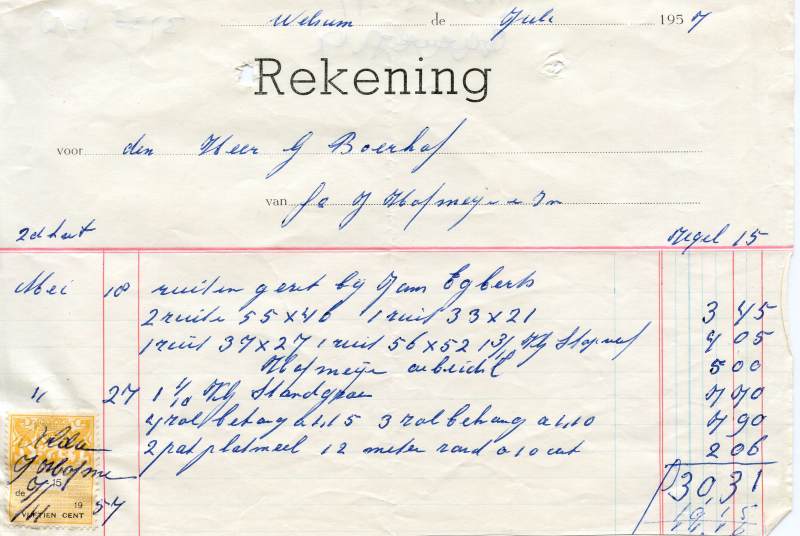 Welsum de Juli 1957
Rekening
voor den Heer G Boerhof
van Fa J Hofmeijer en Zn
Regel 15
Mei 18 ruiten gezet bij Jans Egberts
2 ruite 55 x 46 1 ruit 33 x 21 3 45
1 ruit 37 x 27 1 ruit 56 x 52 Kg Stopverf 4 05
Hofmeijer arbeidsl 5 00
" 27 1 1/10 Kg Standgroen 7 70
4 rol behang a 1,15 3 rol behang a 1,10 7 90
2 pat platmeel 12 meter rand a 10 cent 2 06
30,31
Voldaan
J Hofme
de 15
19 57
VIJFTIEN CENT